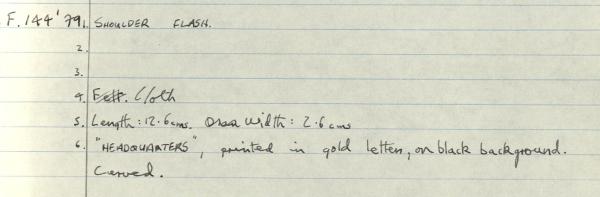 F.144'79. 1. SHOULDER FLASH.
2.
3.
4. Felt. Cloth
5. Length: 12.6cms. Width: 2.6cms
6. "HEADQUARTERS", printed in gold letters, on black background.
Curved.